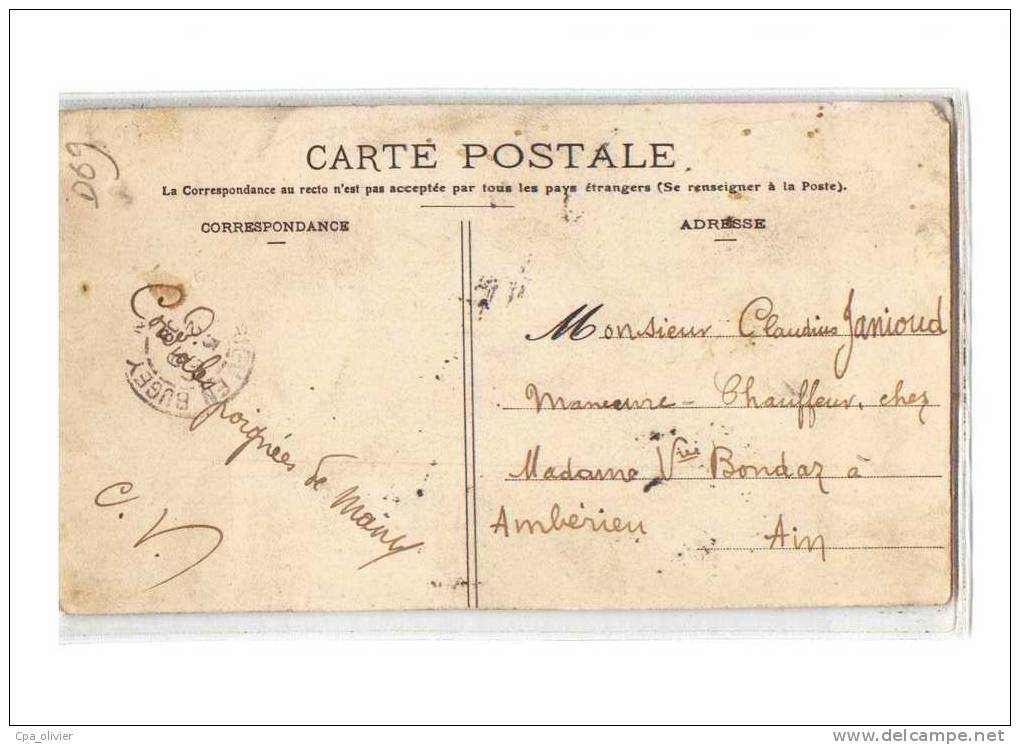 D69
CARTE POSTALE
La Correspondance au recto n'est pas acceptée par tous les pays étrangers (Se renseigner à la Poste).
CORRESPONDANCE
ADRESSE
Cordiales
poignées de mains
C. V.
BUGEY
Monsieur Claudius Janioud
Manœuvre - Chauffeur, chez
Madame Vve Bondaz à
Ambérieu
Ain
Cpa_olivier
www.delcampe.net